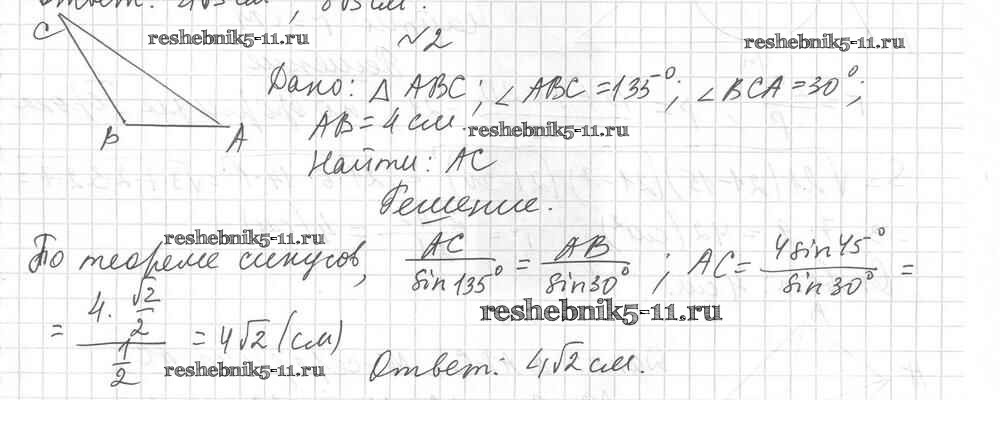 Ответ: 4√3 см, 8√3 см.
C
reshebnik5-11.ru
№2
reshebnik5-11.ru
Дано: △ ABC; ∠ABC = 135°; ∠BCA = 30°;
B
A
AB = 4 см.
reshebnik5-11.ru
Найти: AC
Решение.
reshebnik5-11.ru
По теореме синусов, AC/sin135° = AB/sin30° ; AC = 4sin45°/sin30° =
reshebnik5-11.ru
= (4·√2/2)/(1/2) = 4√2 (см)
reshebnik5-11.ru
Ответ: 4√2 см.